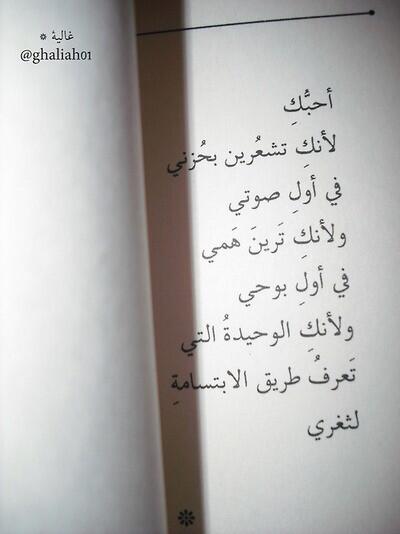 غالية
@ghaliah01
أحبُّكِ
لأنكِ تشعُرين بحُزني
في أولِ صوتي
ولأنكِ تَرينَ هَمي
في أولِ بوحي
ولأنكِ الوحيدةُ التي
تَعرفُ طريق الابتسامةِ
لثغري